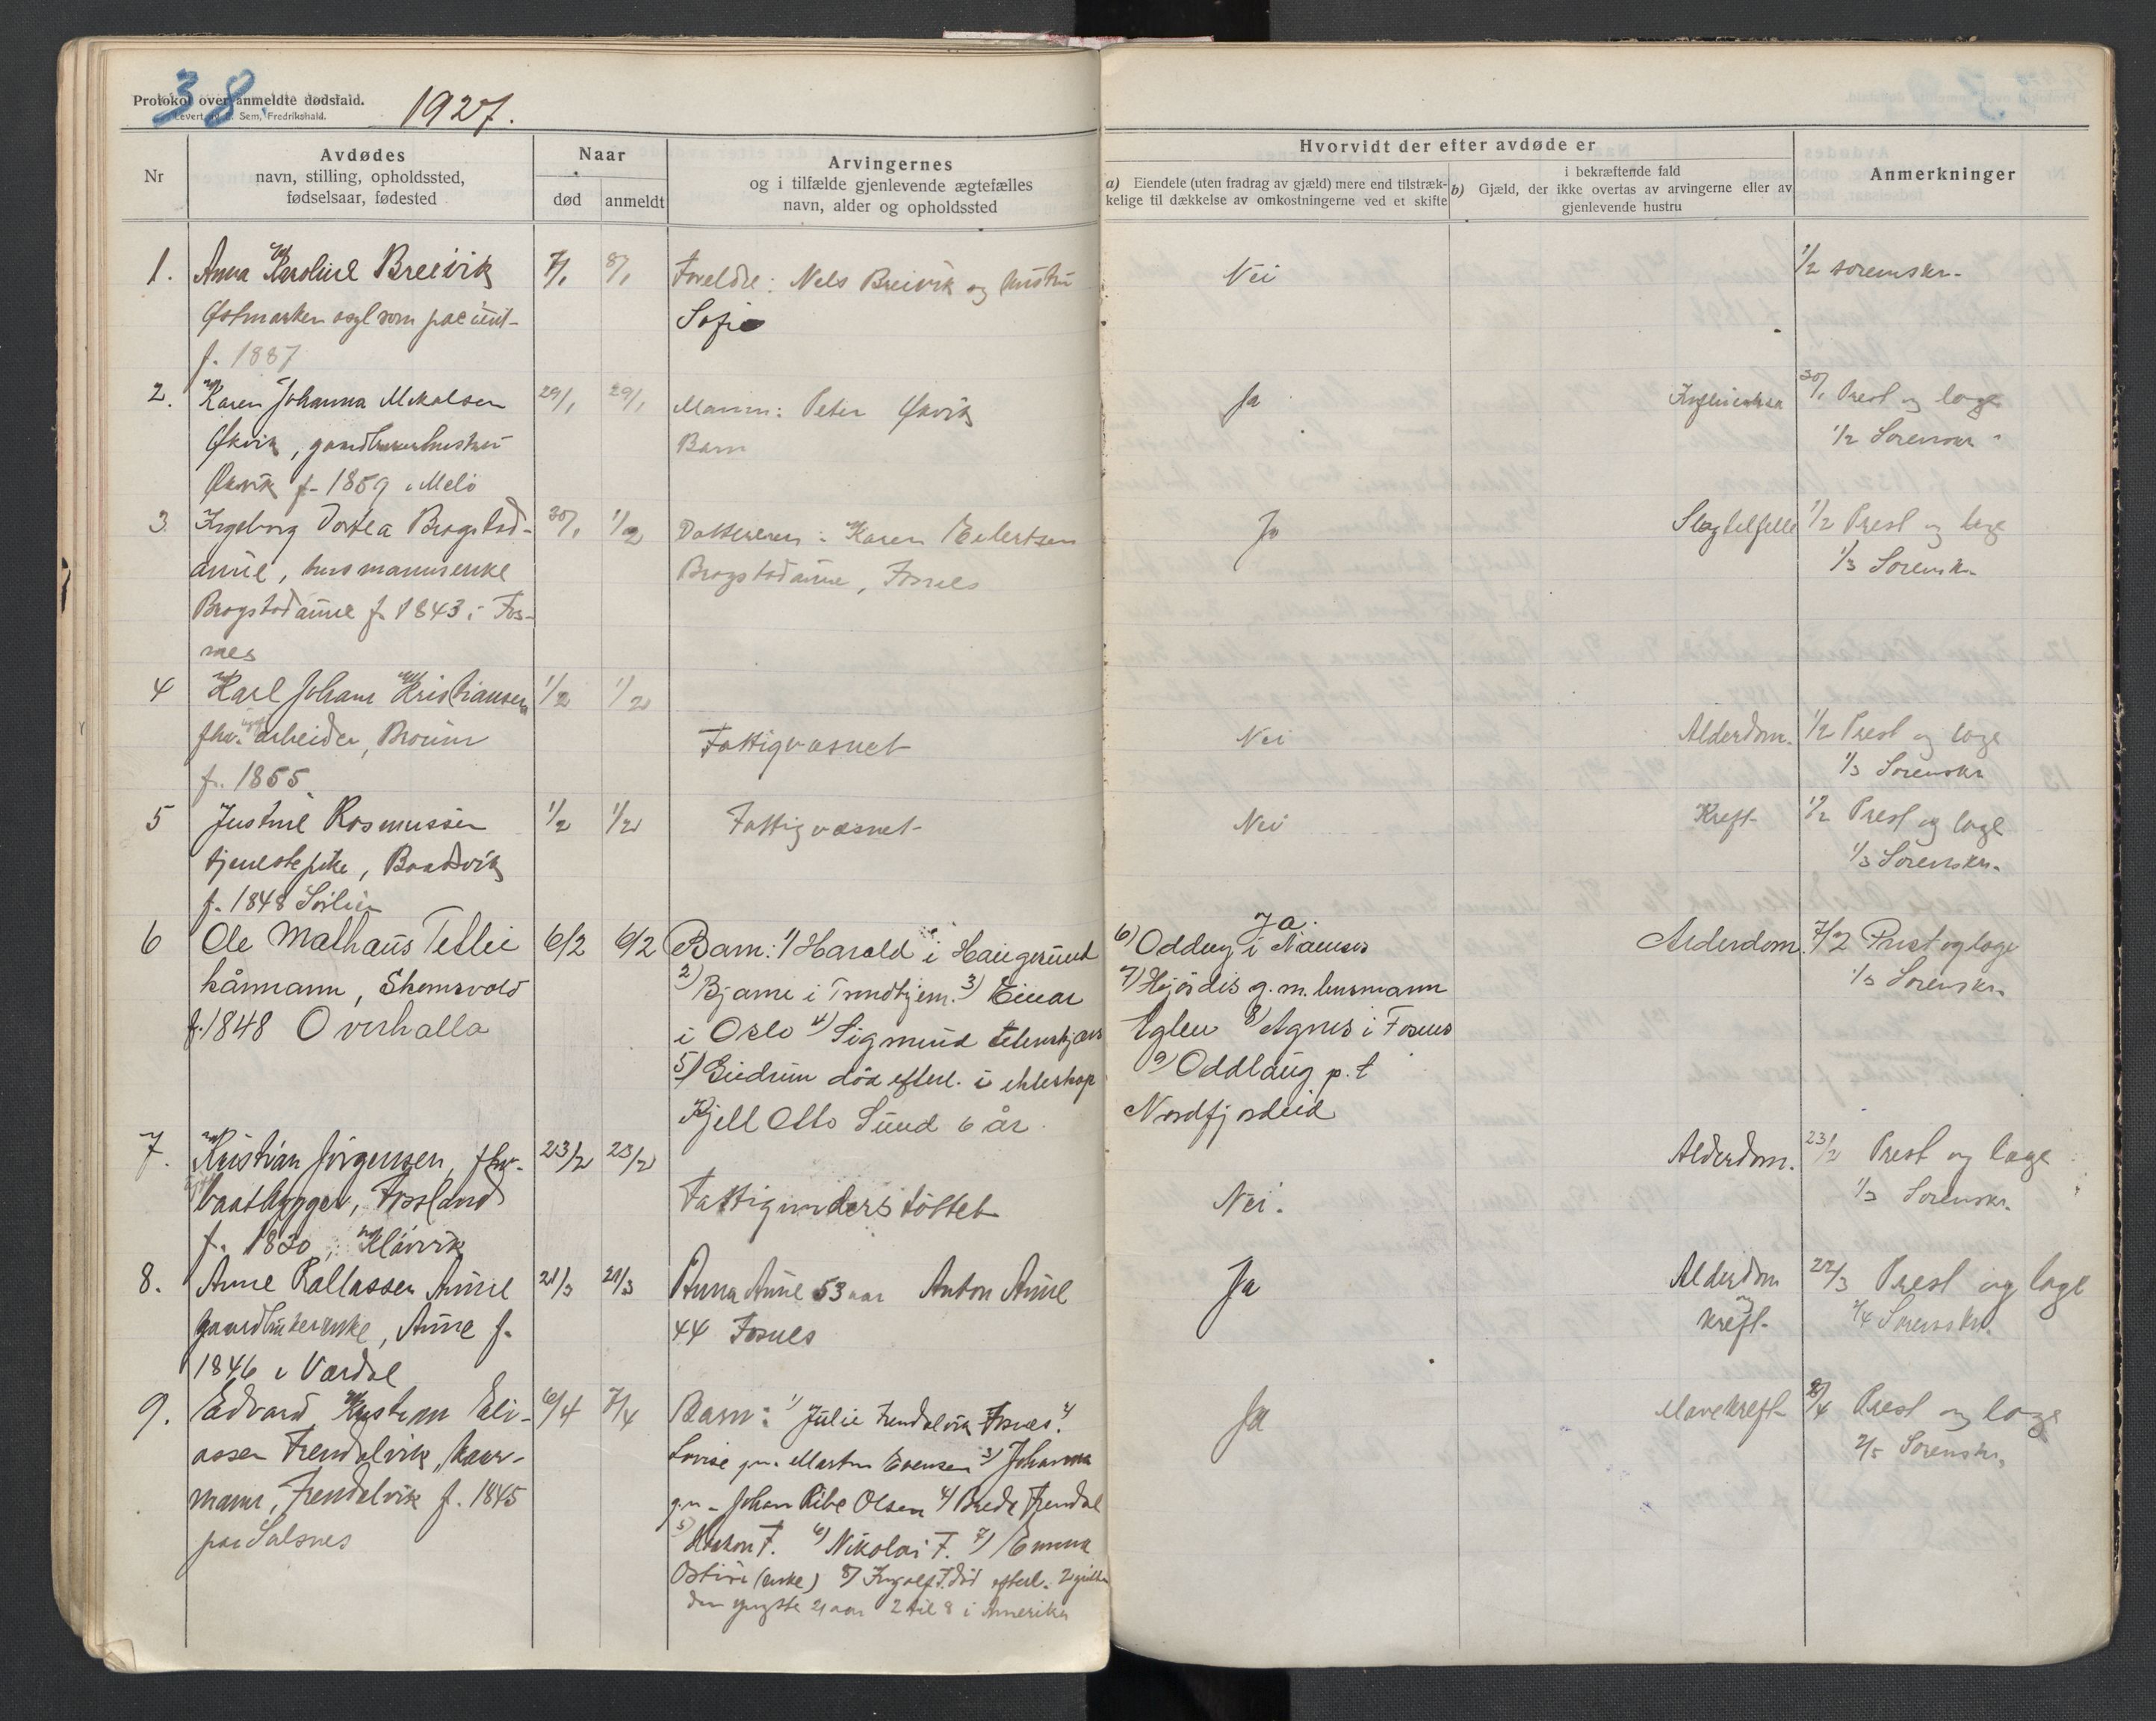 38.
Protokol over anmeldte dødsfald.
Levert av E. Sem, Fredrikshald.
1927.
Nr
Avdødes
navn, stilling, opholdssted,
fødselsaar, fødested
Naar
død
anmeldt
Arvingernes
og i tilfælde gjenlevende ægtefælles
navn, alder og opholdssted
Hvorvidt der efter avdøde er
a) Eiendele (uten fradrag av gjæld) mere end tilstræk-
kelige til dækkelse av omkostningerne ved et skifte
i bekræftende fald
b) Gjæld, der ikke overtas av arvingerne eller av
gjenlevende hustru
Anmerkninger
1. Anna Karoline Breivik 7/1 8/1 Foreldre: Nels Breivik og hustru Nei 1/2 sorenskr.
Østmarken asyl som pacient Sofie
f. 1887
2. Karen Johanna Mikalsen 29/1 29/1 Mann: Peter Økvik Ja 30/1 Prest og læge
Økvik, gaardbrukerhustru Barn 1/2 Sorenskr.
Økvik f. 1859 i Melö
3. Ingeborg Dortea Brogstad- 30/1 1/2 Datteren: Karen Eilertsen Ja Slagtilfelle 1/2 Prest og læge
aune, husmannsenke Brogstadaune, Fosnes 1/3 Sorenskr.
Brogstadaune f. 1843 i Fos-
nes
4 Karl Johan Kristiansen 1/2 1/2
fhv. arbeider, Fattigvæsnet Nei Alderdom. 1/2 Prest og læge
f. 1855. 1/3 Sorenskr
5 Justine Rasmussen 1/2 1/2 Fattigvæsnet Nei Kreft 1/2 Prest og læge
tjenestepike, Bandsvik 1/3 Sorenskr.
f. 1848 Sörlien
6 Ole Mathaus Tetlie 6/2 6/2 Barn: 1) Harald i Haugesund Ja. 6) Oddny i Namsos Alderdom. 7/2 Prest og læge
kårmann, Skomsvold 2) Bjarne i Trondhjem. 3) Einar 7) Hjördis g. m. lensmann 1/3 Sorenskr.
f. 1848 Overhalla i Oslo 4) Sigmund 8) Agnes i Fosnes
5) Gudrun död efterl. i ekteskap 9) Oddlaug p.t
Kjell Otto Sund 6 år. Nordfjordeid
7. Kristian Jörgensen, fhv. 23/2 23/2 Alderdom. 23/2 Prest og læge
baatbygger, Fossland Fattigunderstöttet Nei. 1/3 Sorenskr.
f. 1830, Kløvvik
8. Anne Pallassen Aune 21/3 21/3 Anna Aune 53 aar Anton Aune Ja Alderdom 22/3 Prest og læge
gaardbrukerenke, Aune f. 44 Fosnes og kreft 2/4 Sorenskr.
1846 i Værdal
9. Edvard Kristian Eli- 6/4 7/4 Barn: 1) Julie Frendalvik Fosnes. 2) Ja Mavekreft 8/4 Prest og læge
assen Frendalvik, kaar- Lovise g.m. Martin Evensen 3) Johanna 2/5 Sorenskr.
mann, Frendalvik f. 1845 g.m. Johan Ribe Olsen 4) Frendal
paa Salsnes 5) Haakon F. 6) Nikolai F. 7) Emma
(enke) 8) Ingolf F. död efterl. 2
den yngste 21 aar 2 til 8 i Amerika